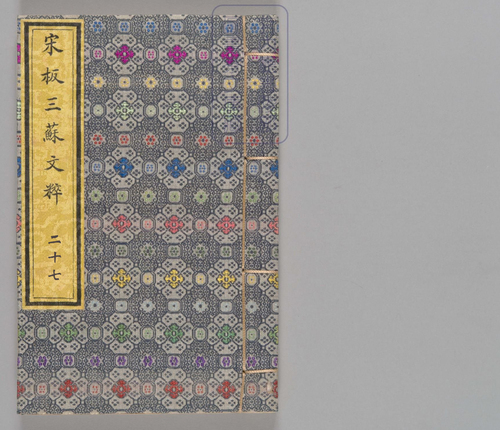 宋板三蘇文粹 二十七